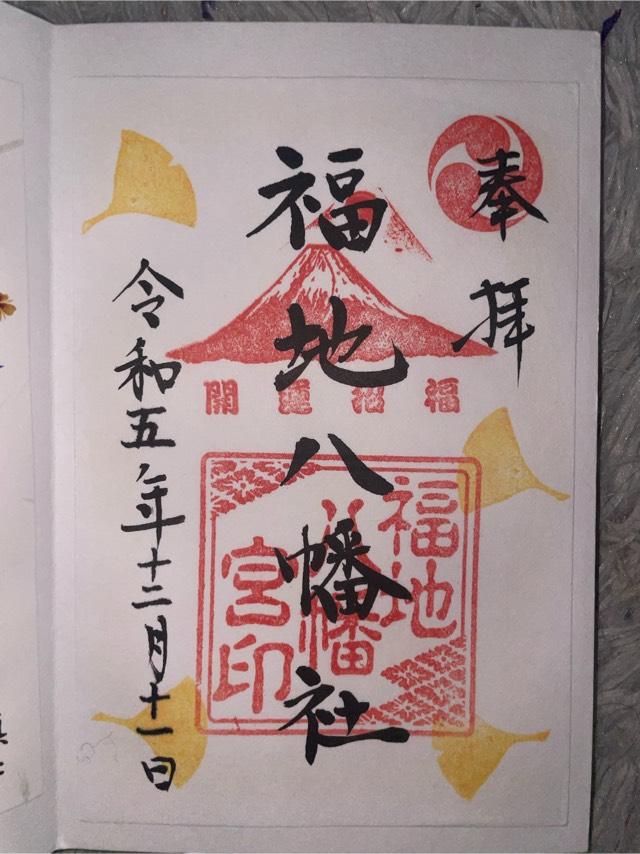 奉拝
福地八幡社
開運招福
福地
八幡
宮印
令和五年十二月十一日